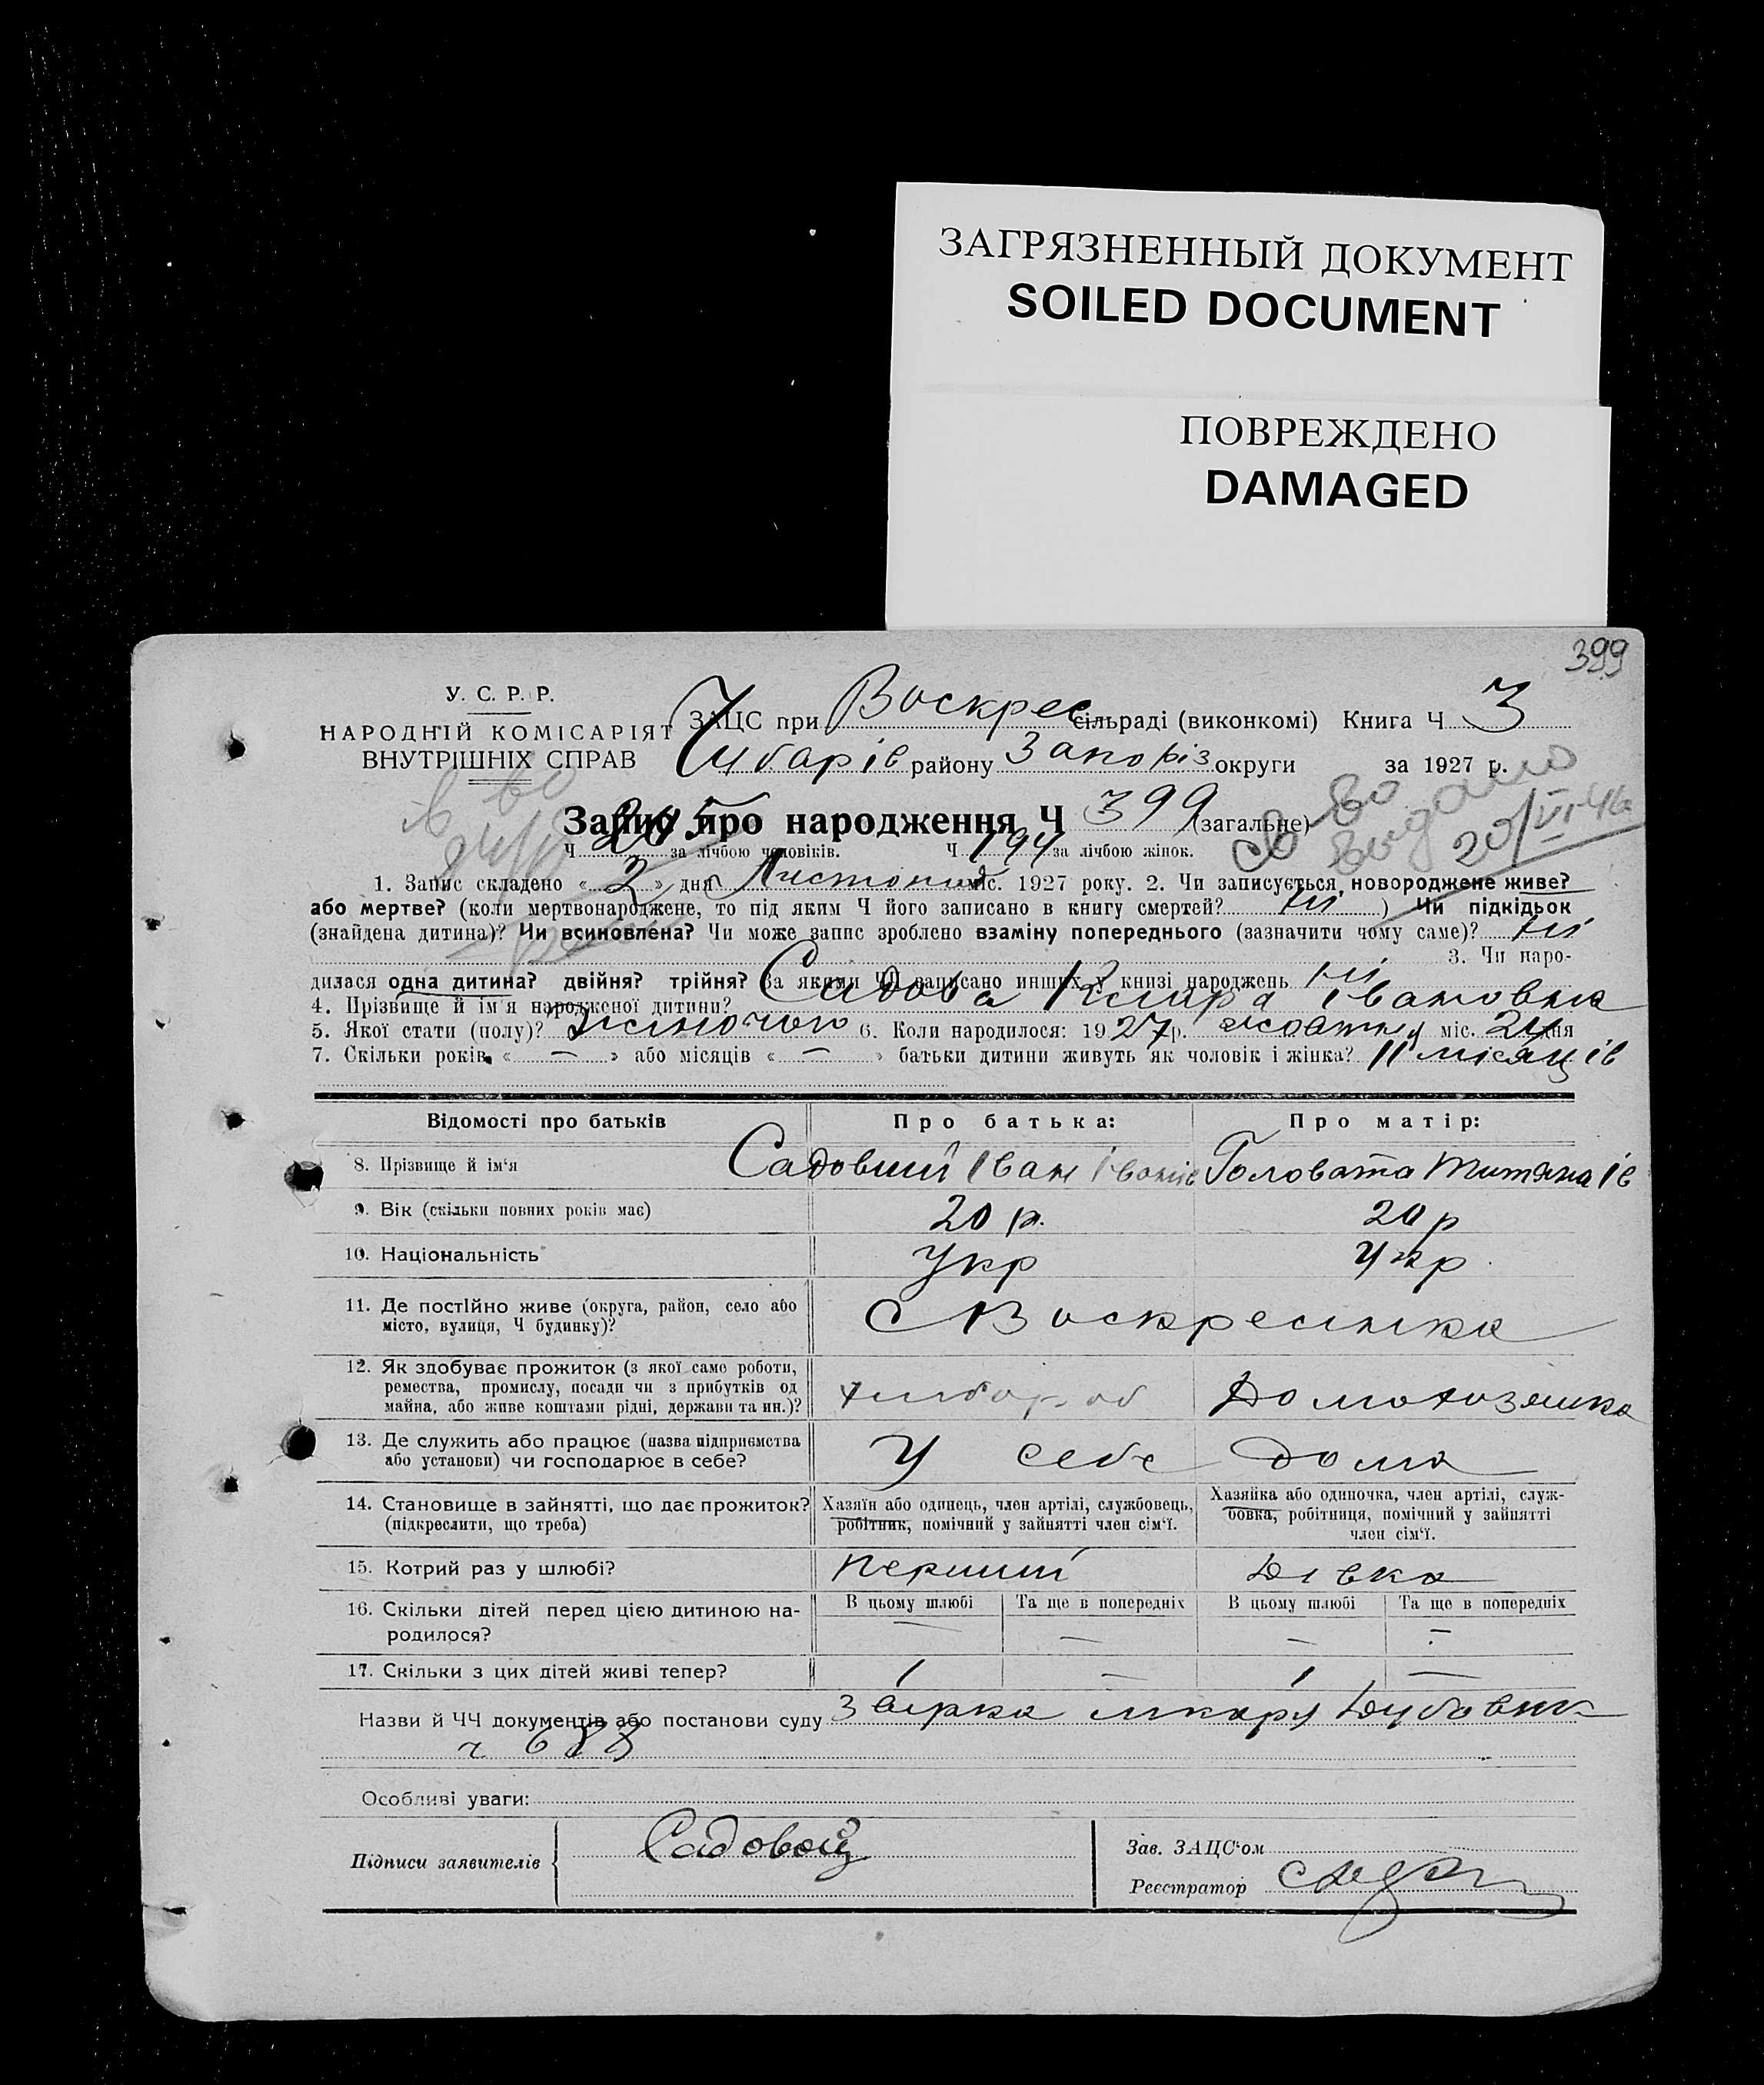 ЗАГРЯЗНЕННЫЙ ДОКУМЕНТ
SOILED DOCUMENT
ПОВРЕЖДЕНО
DAMAGED
399
У. С. Р. Р.
НАРОДНІЙ КОМІСАРІЯТ
ВНУТРІШНІХ СПРАВ
ЗАЦС при Воскрес сільраді (виконкомі) Книга Ч 3
Чубарів району Запоріз округи за 1927 р.
Запис про народження Ч 399 (загальне)
Ч 205 за лічбою чоловіків. Ч 194 за лічбою жінок.
св во
видано
20/VI-46
1. Запис складено « 2 » дня Листопад міс. 1927 року. 2. Чи записується новороджене живе?
або мертве? (коли мертвонароджене, то під яким Ч його записано в книгу смертей? ні ) Чи підкідьок
(знайдена дитина)? Чи всиновлена? Чи може запис зроблено взаміну попереднього (зазначити чому саме)? ні
3. Чи наро-
дилася одна дитина? двійня? трійня? За якими ЧЧ записано инших у книзі народжень ні
4. Прізвище й ім'я народженої дитини? Садова Клара Івановна
5. Якої стати (полу)? жіночого 6. Коли народилося: 1927 р. жовтня міс. 24 дня
7. Скільки років « — » або місяців « — » батьки дитини живуть як чоловік і жінка? 11 місяців
Відомості про батьків Про батька: Про матір:
8. Прізвище й ім'я Садовий Іван Іванів Головата Титяна Ів
9. Вік (скільки повних років має) 20 р. 20 р
10. Національність Укр Укр.
11. Де постійно живе (округа, район, село або
місто, вулиця, Ч будинку)? С Воскресінка
12. Як здобуває прожиток (з якої саме роботи,
ремества, промислу, посади чи з прибутків од
майна, або живе коштами рідні, держави та ин.)? хлібороб Домохозяшка
13. Де служить або працює (назва підприємства
або установи) чи господарює в себе? У себе дома
14. Становище в зайнятті, що дає прожиток?
(підкреслити, що треба)
Хазяїн або одинець, член артілі, службовець,
робітник, помічний у зайнятті член сім'ї.
Хазяйка або одиночка, член артілі, служ-
бовка, робітниця, помічний у зайнятті
член сім'ї.
15. Котрий раз у шлюбі? перший Дівка
16. Скільки дітей перед цією дитиною на-
родилося?
В цьому шлюбі Та ще в попередніх В цьому шлюбі Та ще в попередніх
— — — —
17. Скільки з цих дітей живі тепер? 1 — 1 —
Назви й ЧЧ документів або постанови суду
Особливі уваги:
Підписи заявителів Садовой
Зав. ЗАЦС'ом
Реєстратор